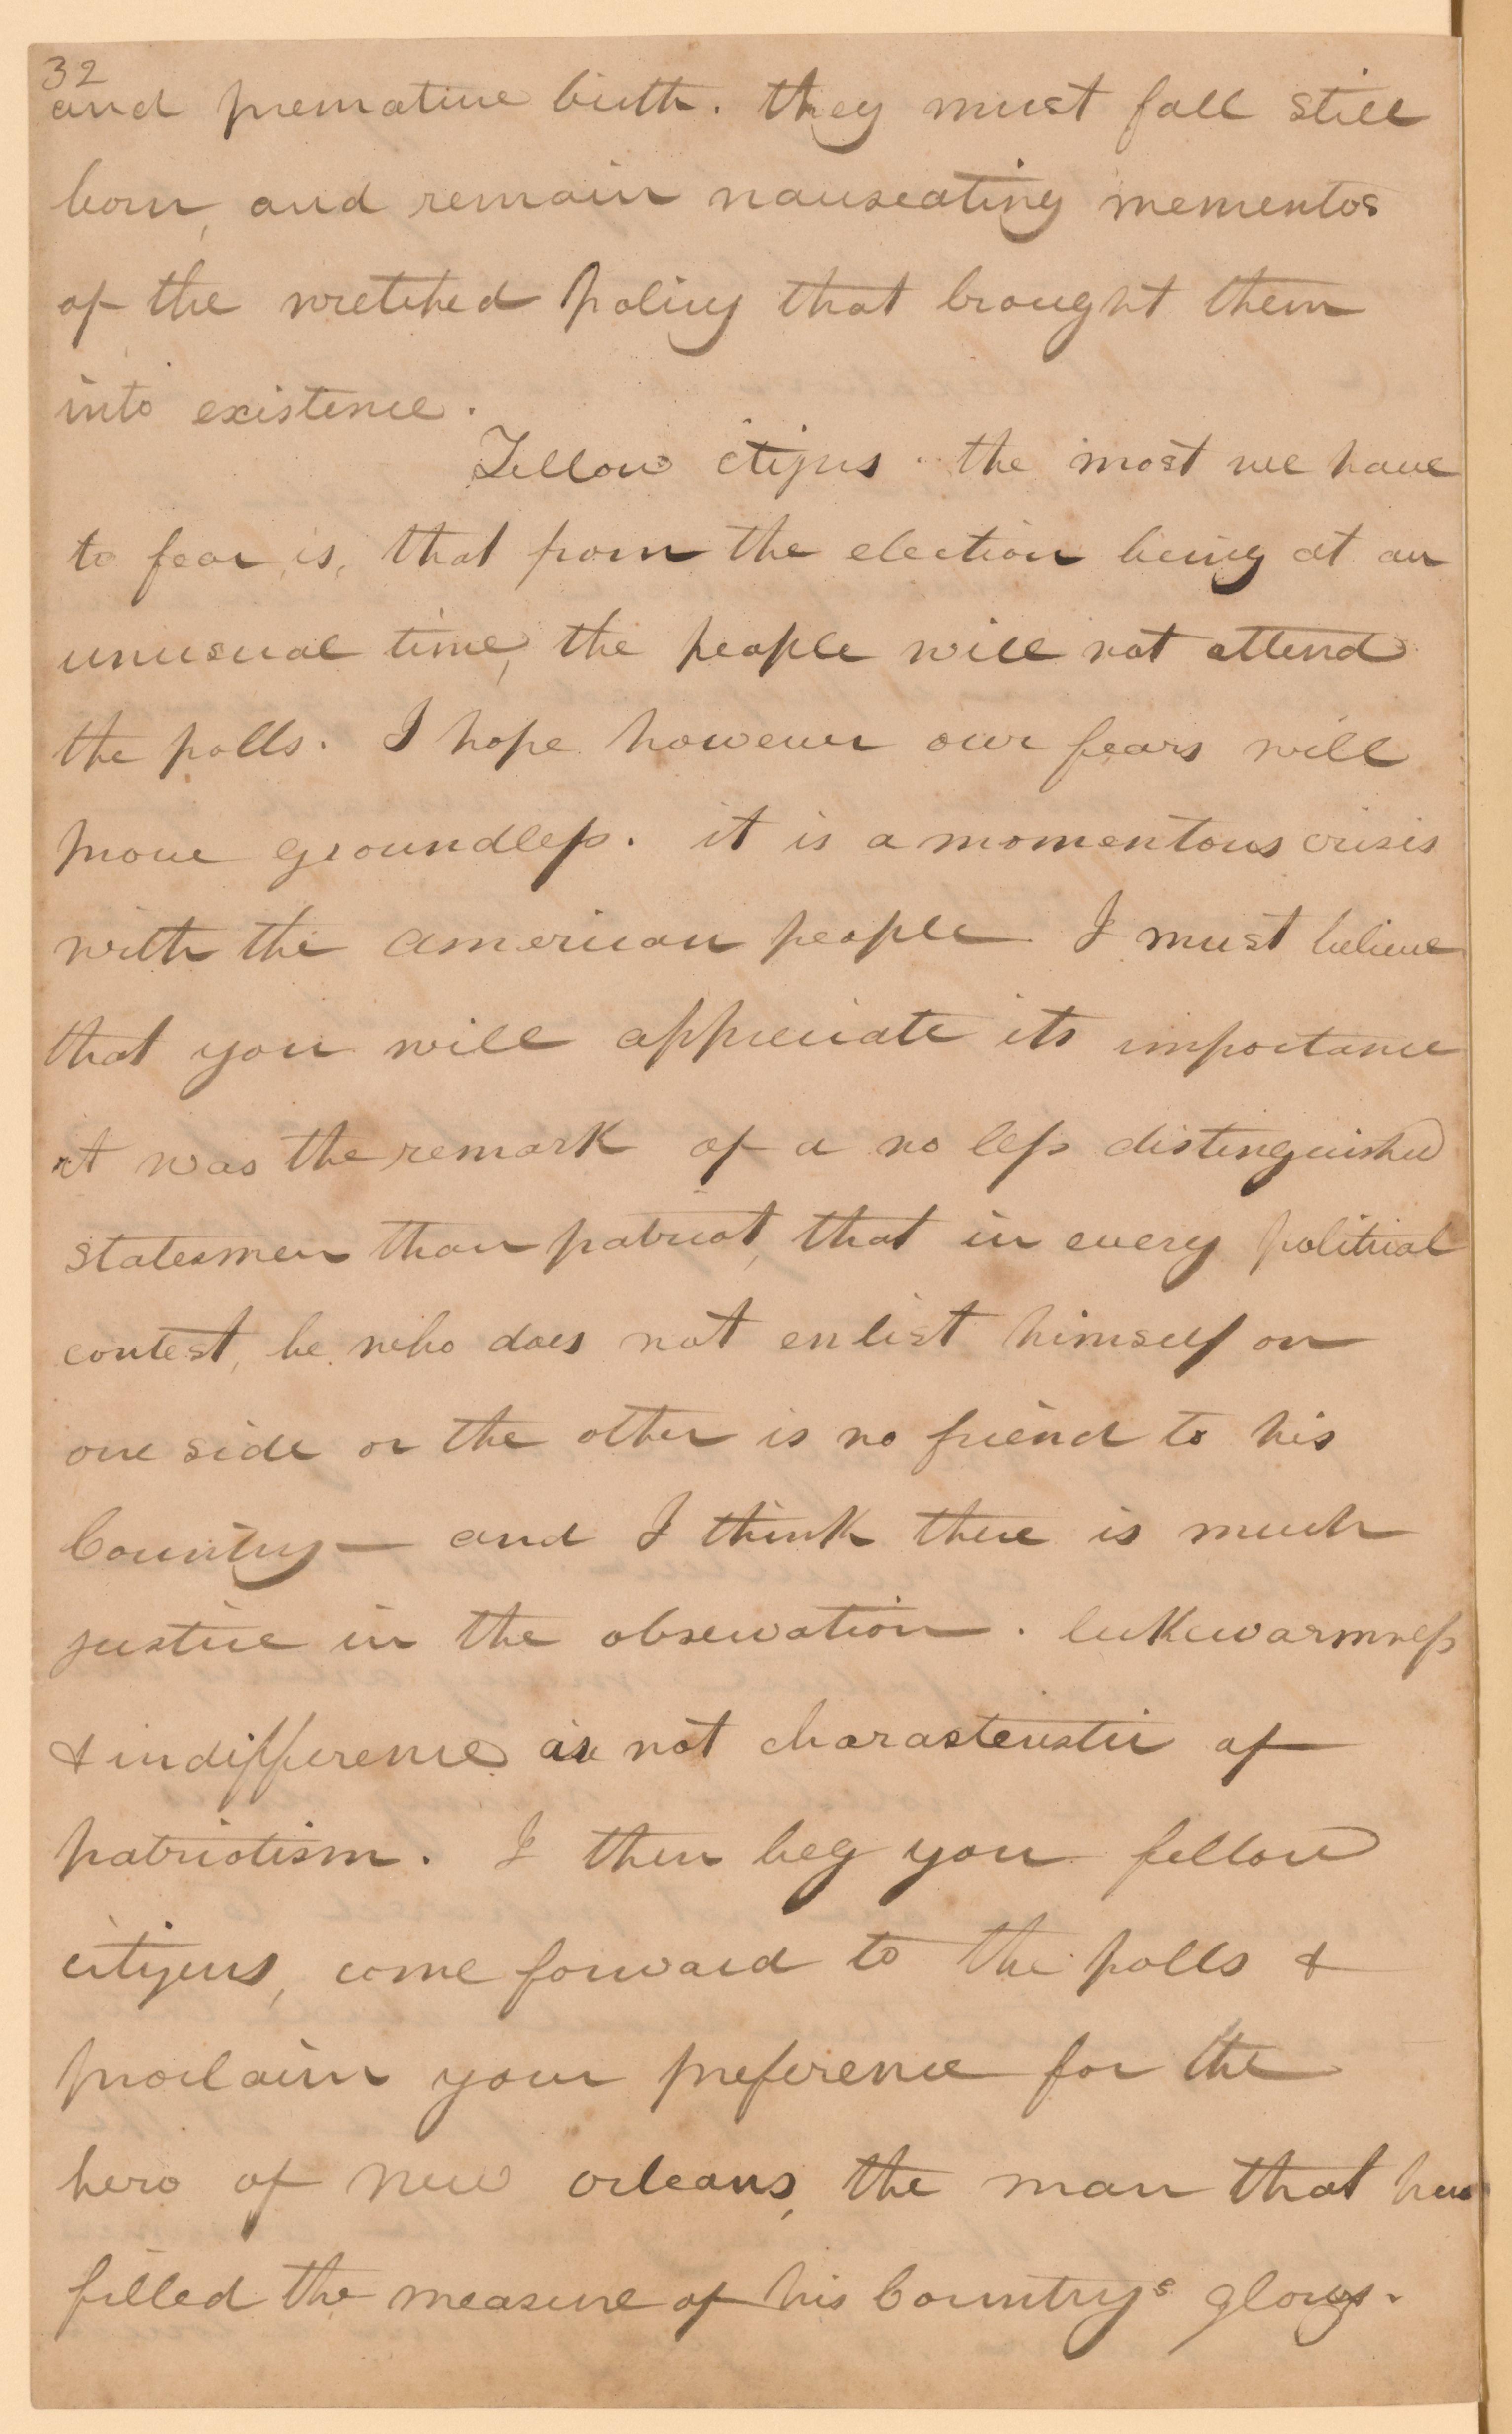 32
and premature birth. they must fall still
born, and remain nauseating mementos
of the wretched policy that brought them
into existence.
Fellow citizens. the most we have
to fear, is, that from the election being at an
unusual time, the people will not attend
the polls. I hope however our fears will
prove groundless. it is a momentous crisis
with the american people. I must believe
that you will appreciate its importance
it was the remark of a no less distinguished
statesmen than patriot, that in every political
contest, he who does not enlist himself on
one side or the other is no friend to his
Country — and I think there is much
justice in the observation. lukewarmness
& indifference are not characteristic of
patriotism. I then beg you fellow
citizens, come forward to the polls &
proclaim your preference for the
hero of New orleans, the man that has
filled the measure of his Country's glory.